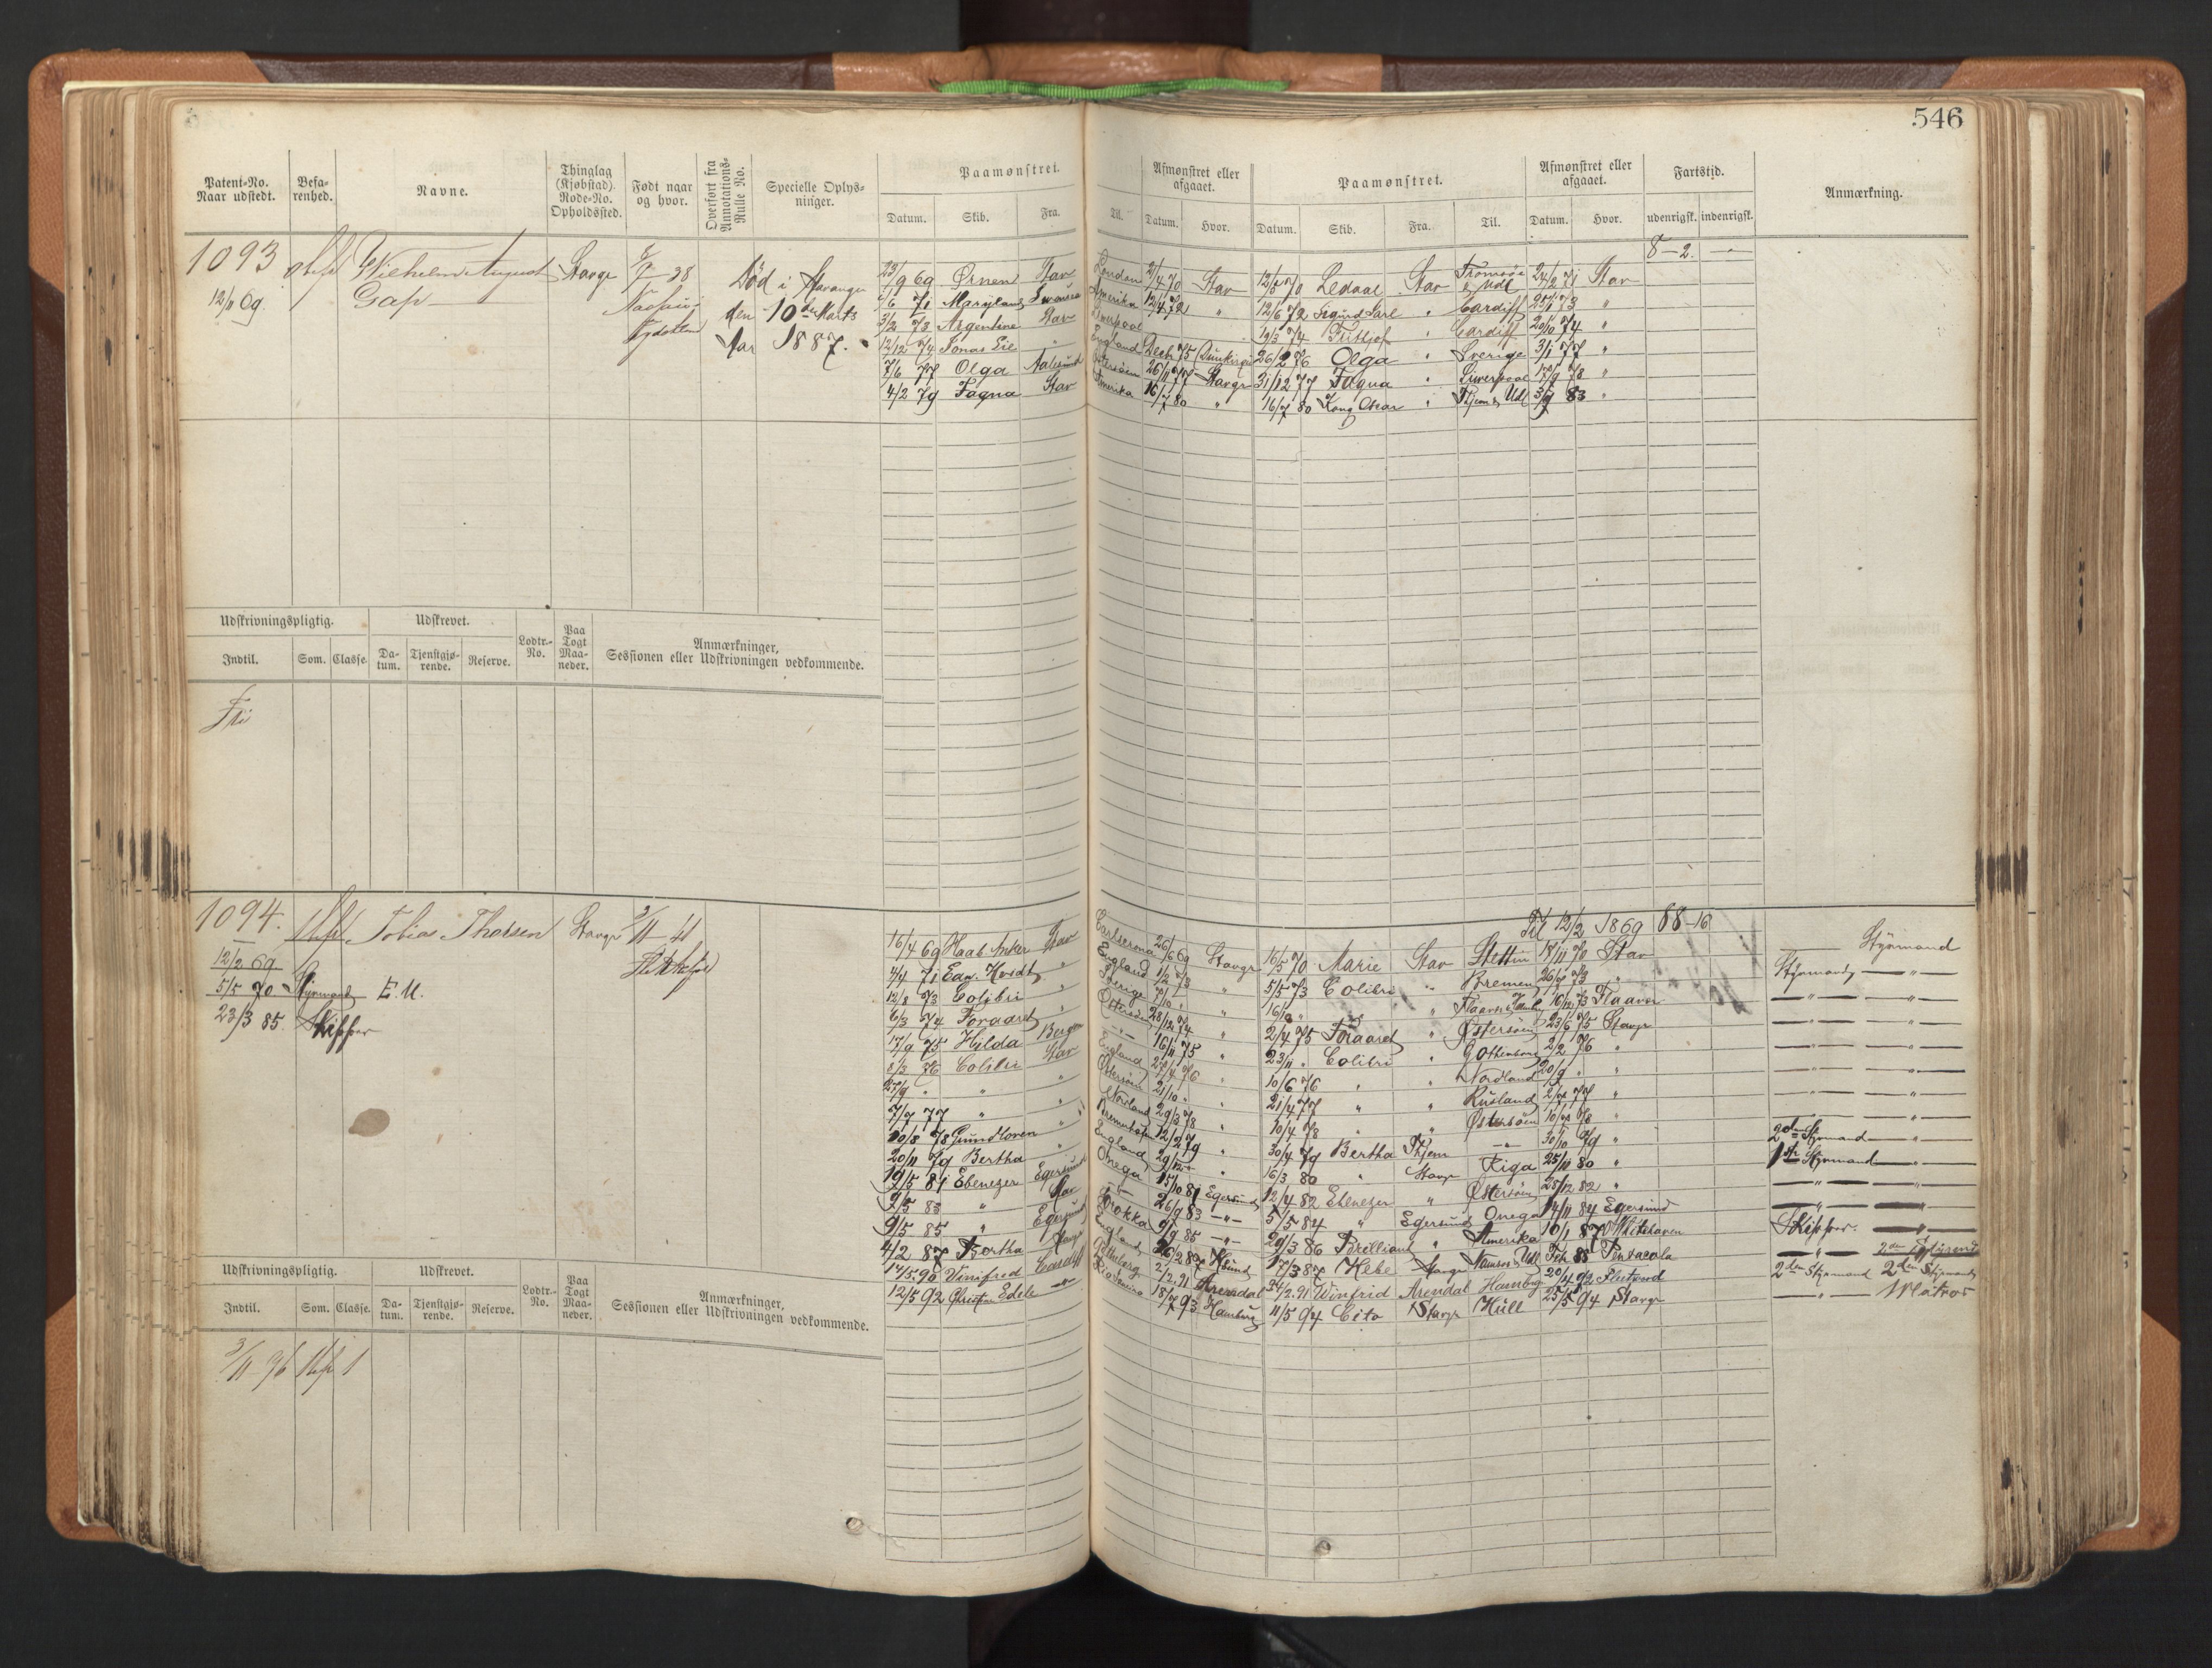 546
Patent-No. Naar udstedt.
Befarenhed.
Navne.
Thinglag (Kjøbstad). Rode-No. Opholdssted.
Født naar og hvor.
Overført fra Annotations-Rulle No.
Specielle Oplysninger.
Paamønstret.
Datum. Skib. Fra. Til.
Afmønstret eller afgaaet.
Datum. Hvor.
Paamønstret.
Datum. Skib. Fra. Til.
Afmønstret eller afgaaet.
Datum. Hvor.
Fartstid.
udenrigsk. indenrigsk.
Anmærkning.
1093 Wilhelm August Stavgr
12/11 69.
Død i Stavanger
den 10de Marts
1887.
8-2.
23/9 69 Ørnen Stav London 2/4 70 Stav 12/5 70 Ledaal Stav Tromsøe & Udl 24/2 71 Stav
71 Maryland Swansea Amerika 12/4 72 " 12/6 72 Sigurd Jarl " Cardiff 73 "
3/2 73 Argentine Stav Liverpool 19/3 74 Fritjof " Cardiff 20/10 74 "
12/12 74 Jonas Lie " England Dech 75 26/2 76 Olga " Sverige 3/1 77 "
7/6 77 Olga Aalesund Østersøen 26/11 77 Stavgr 31/12 77 Fagna " Liverpool 17/9 78 "
4/2 79 Fagna Stav Amerika 16/7 80 " 16/7 80 Kong Oscar " Thjem & Udl 3/9 83 "
Udskrivningspligtig.
Indtil. Som. Classe.
Udskrevet.
Datum. Tjenstgjørende. Reserve.
Lodtr.-No.
Paa Togt Maaneder.
Anmærkninger, Sessionen eller Udskrivningen vedkommende.
Fri
1094. Tobias Thorsen Stavgr 3/11 41
12/2 69
5/5 70 Styrmand E. U.
23/3 85. Skipper
Til 12/2 1869 88-16
16/4 69 Haab Anker Stav Carlscrona 26/6 69 Stavgr 16/5 70 Marie Stav Stettin 18/11 70 Stav Styrmand
4/4 71 " England 1/2 73 " 5/5 73 Colibri " Bremen 73 " Styrmand — " —
12/8 73 Colibri " Sverige 7/10 " " 73 — " —
6/3 74 Foraard " Østersøen 28/12 74 " 2/4 75 Foraard " Østersøen 23/6 75 Stavgr — " —
17/9 75 Hilda Bergen — " — 16/11 75 " 23/11 " Colibri " Gothenborg 2/2 76 " — " —
8/3 76 Colibri Stav England 76 " 10/6 76 " " Nordland 20/9 " " — " —
27/9 " " " Østersøen 21/10 " " 21/4 77 " " Rusland 77 " — " —
7/9 77 " " Nordland 29/3 78 " 10/4 78 " " Østersøen 78 " — " —
20/8 78 " 12/2 79 " 30/4 79 Bertha Thjem — " — 30/10 79 " 2den Styrmand — " —
20/11 79 Bertha " England " 16/3 80 " Stavgr Riga 25/11 80 " 1ste Styrmand — " —
19/5 81 Ebenezer Egersund Onega 15/10 81 Egersund 12/4 82 Ebenezer " Østersøen 28/12 82 " — " —
9/5 83 " Stav — " — 26/9 83 — " — 5/5 84 " Egersund Onega 14/11 84 Egersund — " —
9/5 85 " Egersund 9/9 85 — " — 29/3 86 Brilliant " Amerika 10/1 87 Whitehaven Skipper. — " —
4/2 87 Bertha Stavgr England 26/2 87 17/3 87 Hebe Stavgr Udl Feb 88 Pensacola — " — 2den Styrmd
14/5 90 Vinifred Cardiff 2/2.91 Arendal 24/2.91 Winfrid Arendal Hamburg 20/4 92 Fleetwood 2den Styrmand 2den Styrmand
12/5 92 Edele 18/7 93 Hamburg 11/5 94 Cito Stavgr Hull 25/5 94 Stavgr — " — Matros
Udskrivningspligtig.
Indtil. Som. Classe.
Udskrevet.
Datum. Tjenstgjørende. Reserve.
Lodtr.-No.
Paa Togt Maaneder.
Anmærkninger, Sessionen eller Udskrivningen vedkommende.
3/11 76 1